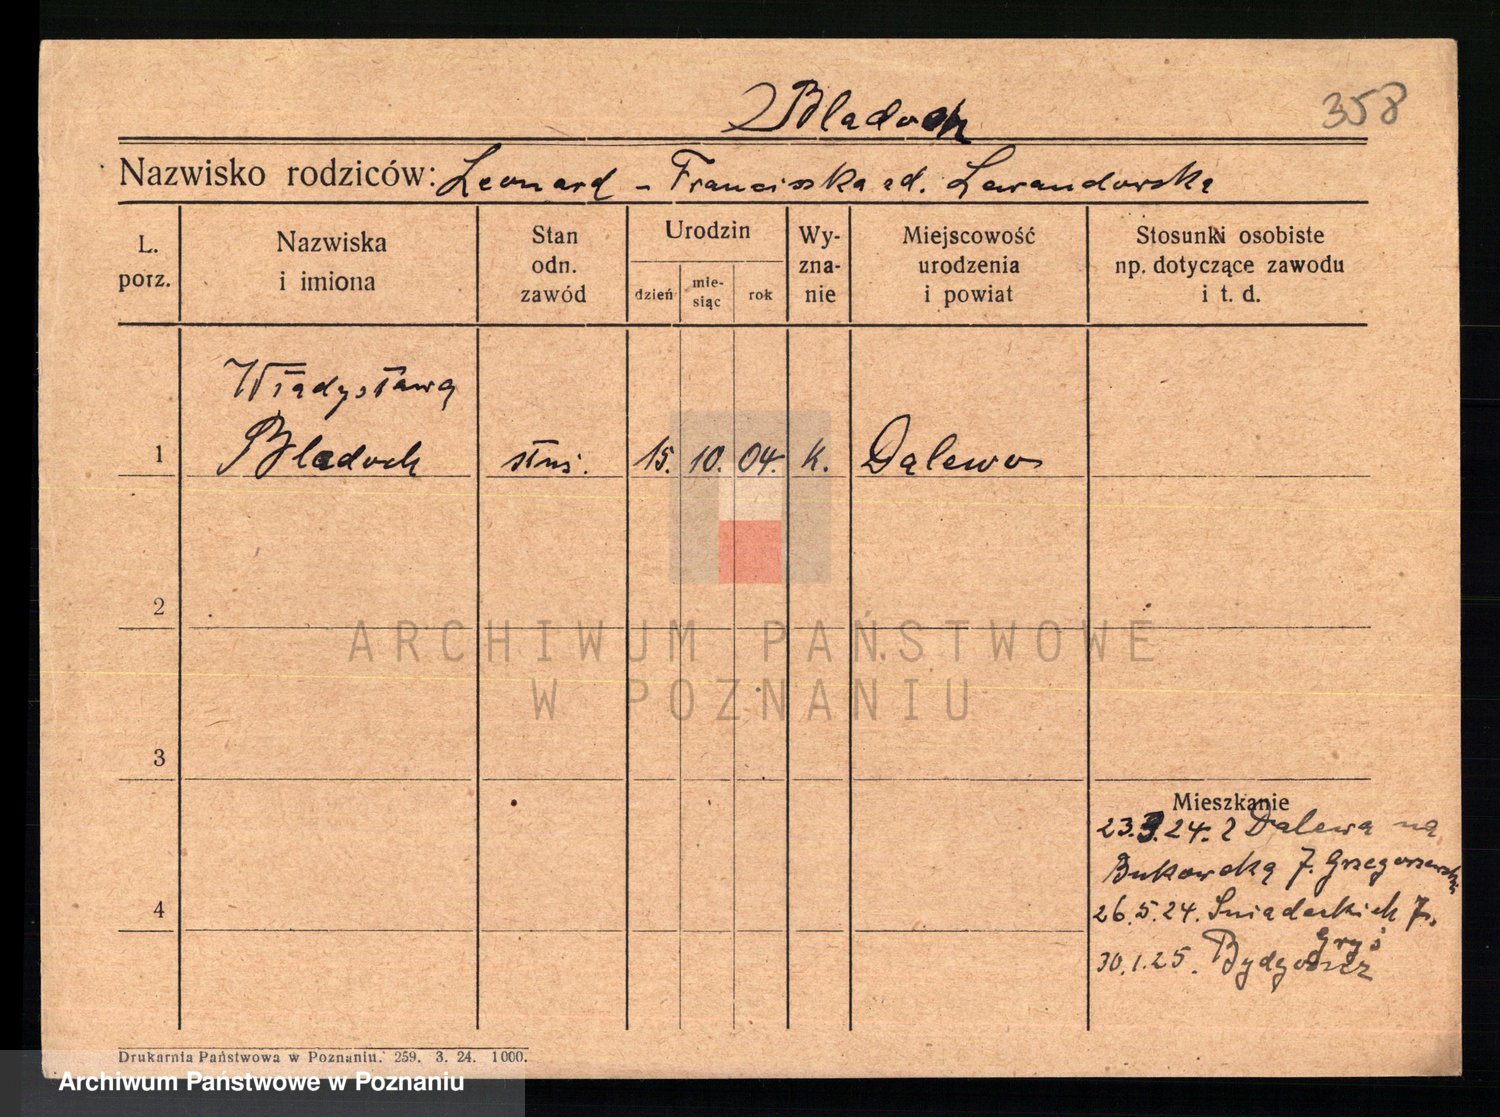 Bladoch
358
Nazwisko rodziców: Leonard - Franciszka ad. Lewandowska
L. porz.
Nazwiska i imiona
Stan odn. zawód
Urodzin
dzień
mie-
siąc
rok
Wy-
zna-
nie
Miejscowość
urodzenia
i powiat
Stosunki osobiste
np. dotyczące zawodu
i t. d.
Władysława
1 Bladoch służ. 15. 10. 04. k. Dalewo
2
ARCHIWUM PAŃSTWOWE
W POZNANIU
3
Mieszkanie
23.3.24. z Dalewa na
Bukowską 7. Grzegorzewski
4
26.5.24. Śniadeckich 7.
Gryś
30.1.25. Bydgoszcz
Drukarnia Państwowa w Poznaniu. 259. 3. 24. 1000.
Archiwum Państwowe w Poznaniu